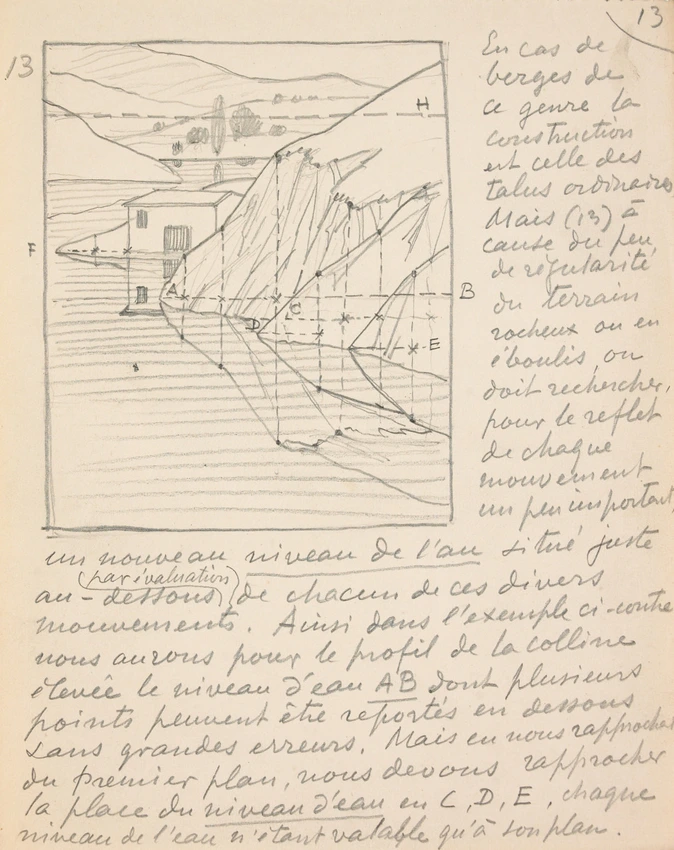 13
13
En cas de
berges de
ce genre la
construction
est celle des
talus ordinaires
Mais (13) à
cause du peu
de régularité
du terrain
rocheux ou en
éboulis, on
doit rechercher,
pour le reflet
de chaque
mouvement
un peu important,
H
F
A
B
C
D
E
un nouveau niveau de l'eau situé juste
(par évaluation)
au-dessous, de chacun de ces divers
mouvements. Ainsi dans l'exemple ci-contre
nous aurons pour le profil de la colline
élevée le niveau d'eau AB dont plusieurs
points peuvent être reportés en dessous
sans grandes erreurs. Mais en nous rapprochant
du premier plan, nous devons rapprocher
la place du niveau d'eau en C, D, E, chaque
niveau de l'eau n'étant valable qu'à son plan.